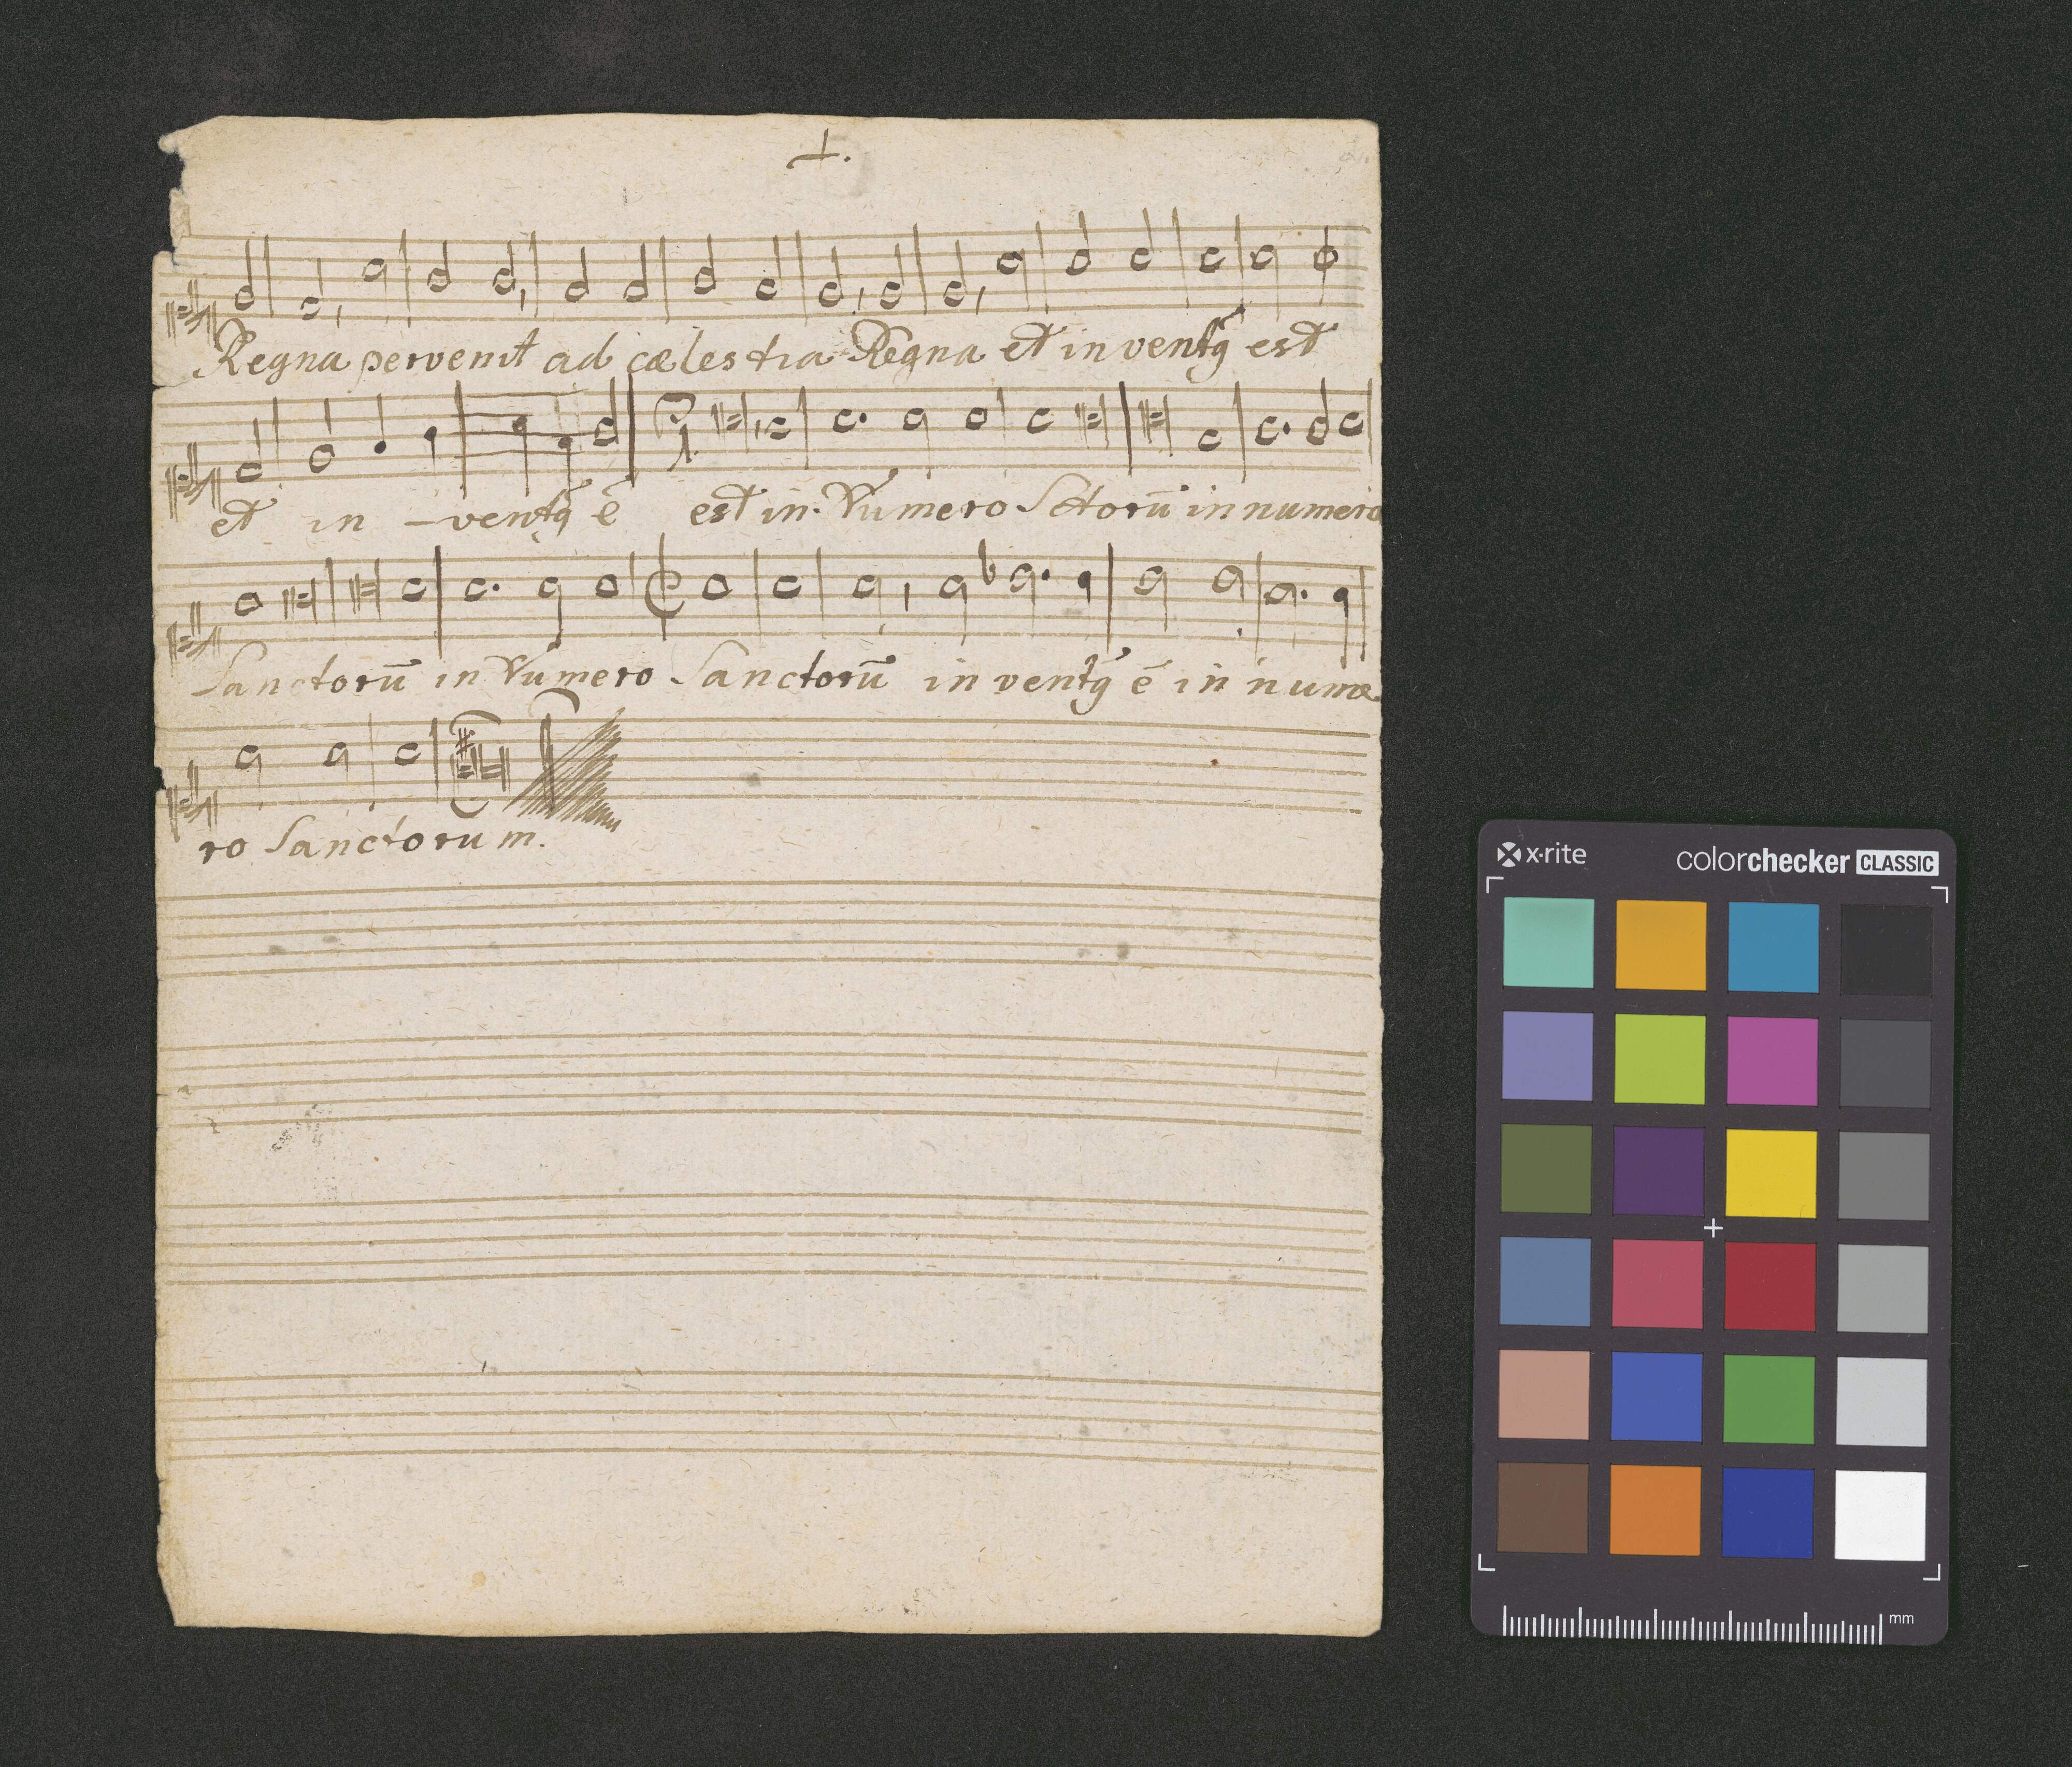 Regna pervenit ad cælestia Regna et in ventꝗ est
et in - ventꝗ ē est in. Numero Sctorū in numero
Sanctorū in Numero Sanctorū in ventꝗ ē in nume
ro Sanctorum.
x·rite colorchecker CLASSIC
mm